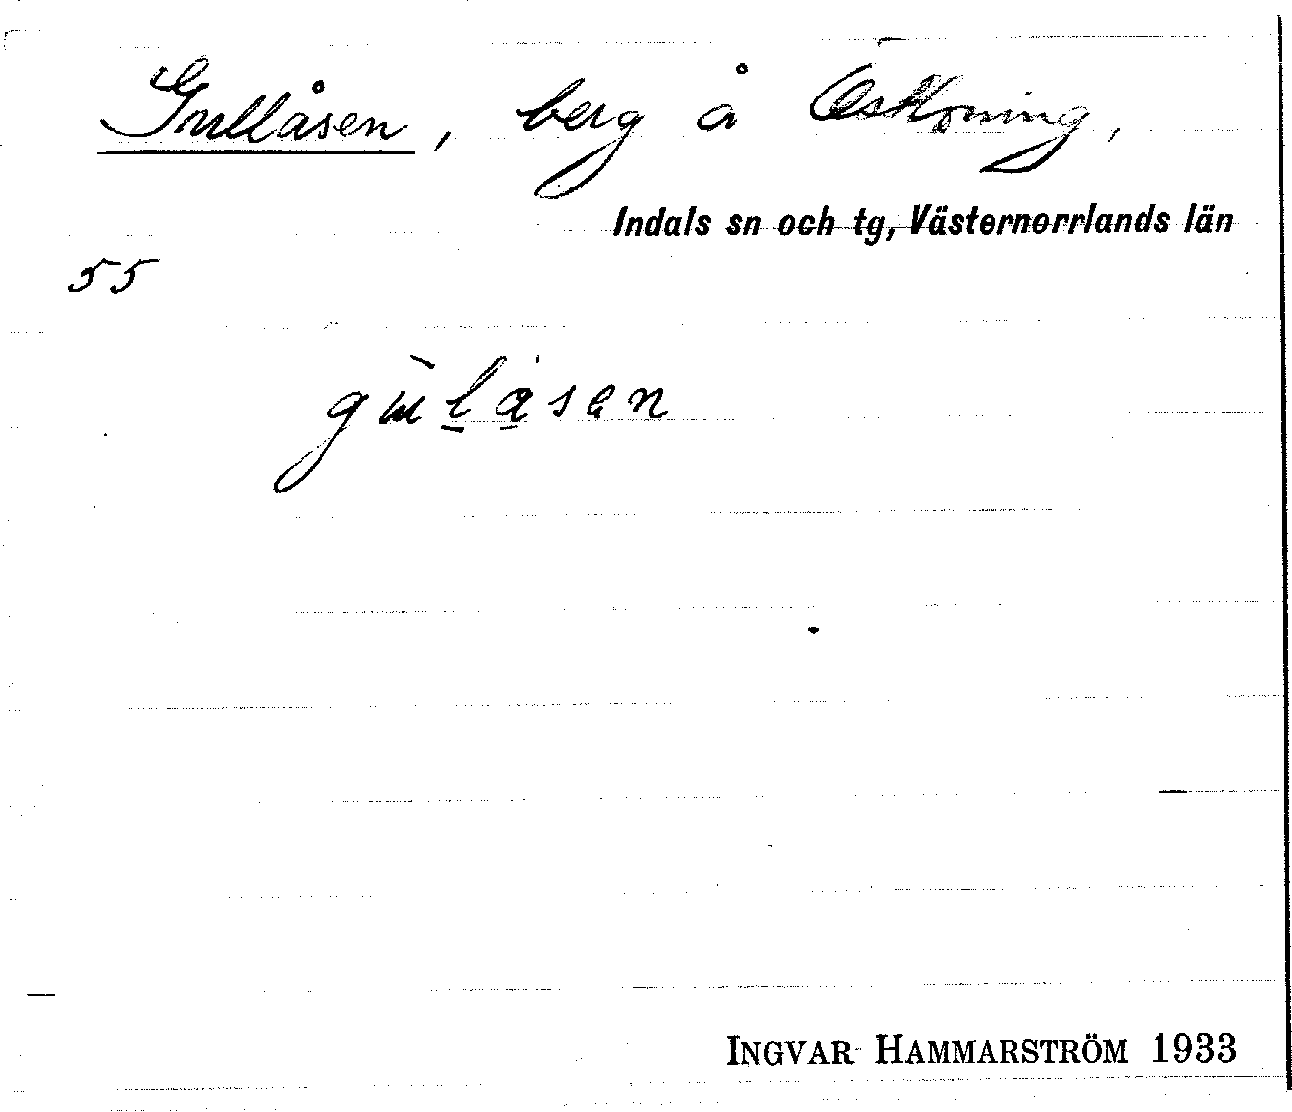 Gullåsen, berg å Östloning,
Indals sn och tg, Västernorrlands län
55
gùlåsen
INGVAR HAMMARSTRÖM 1933